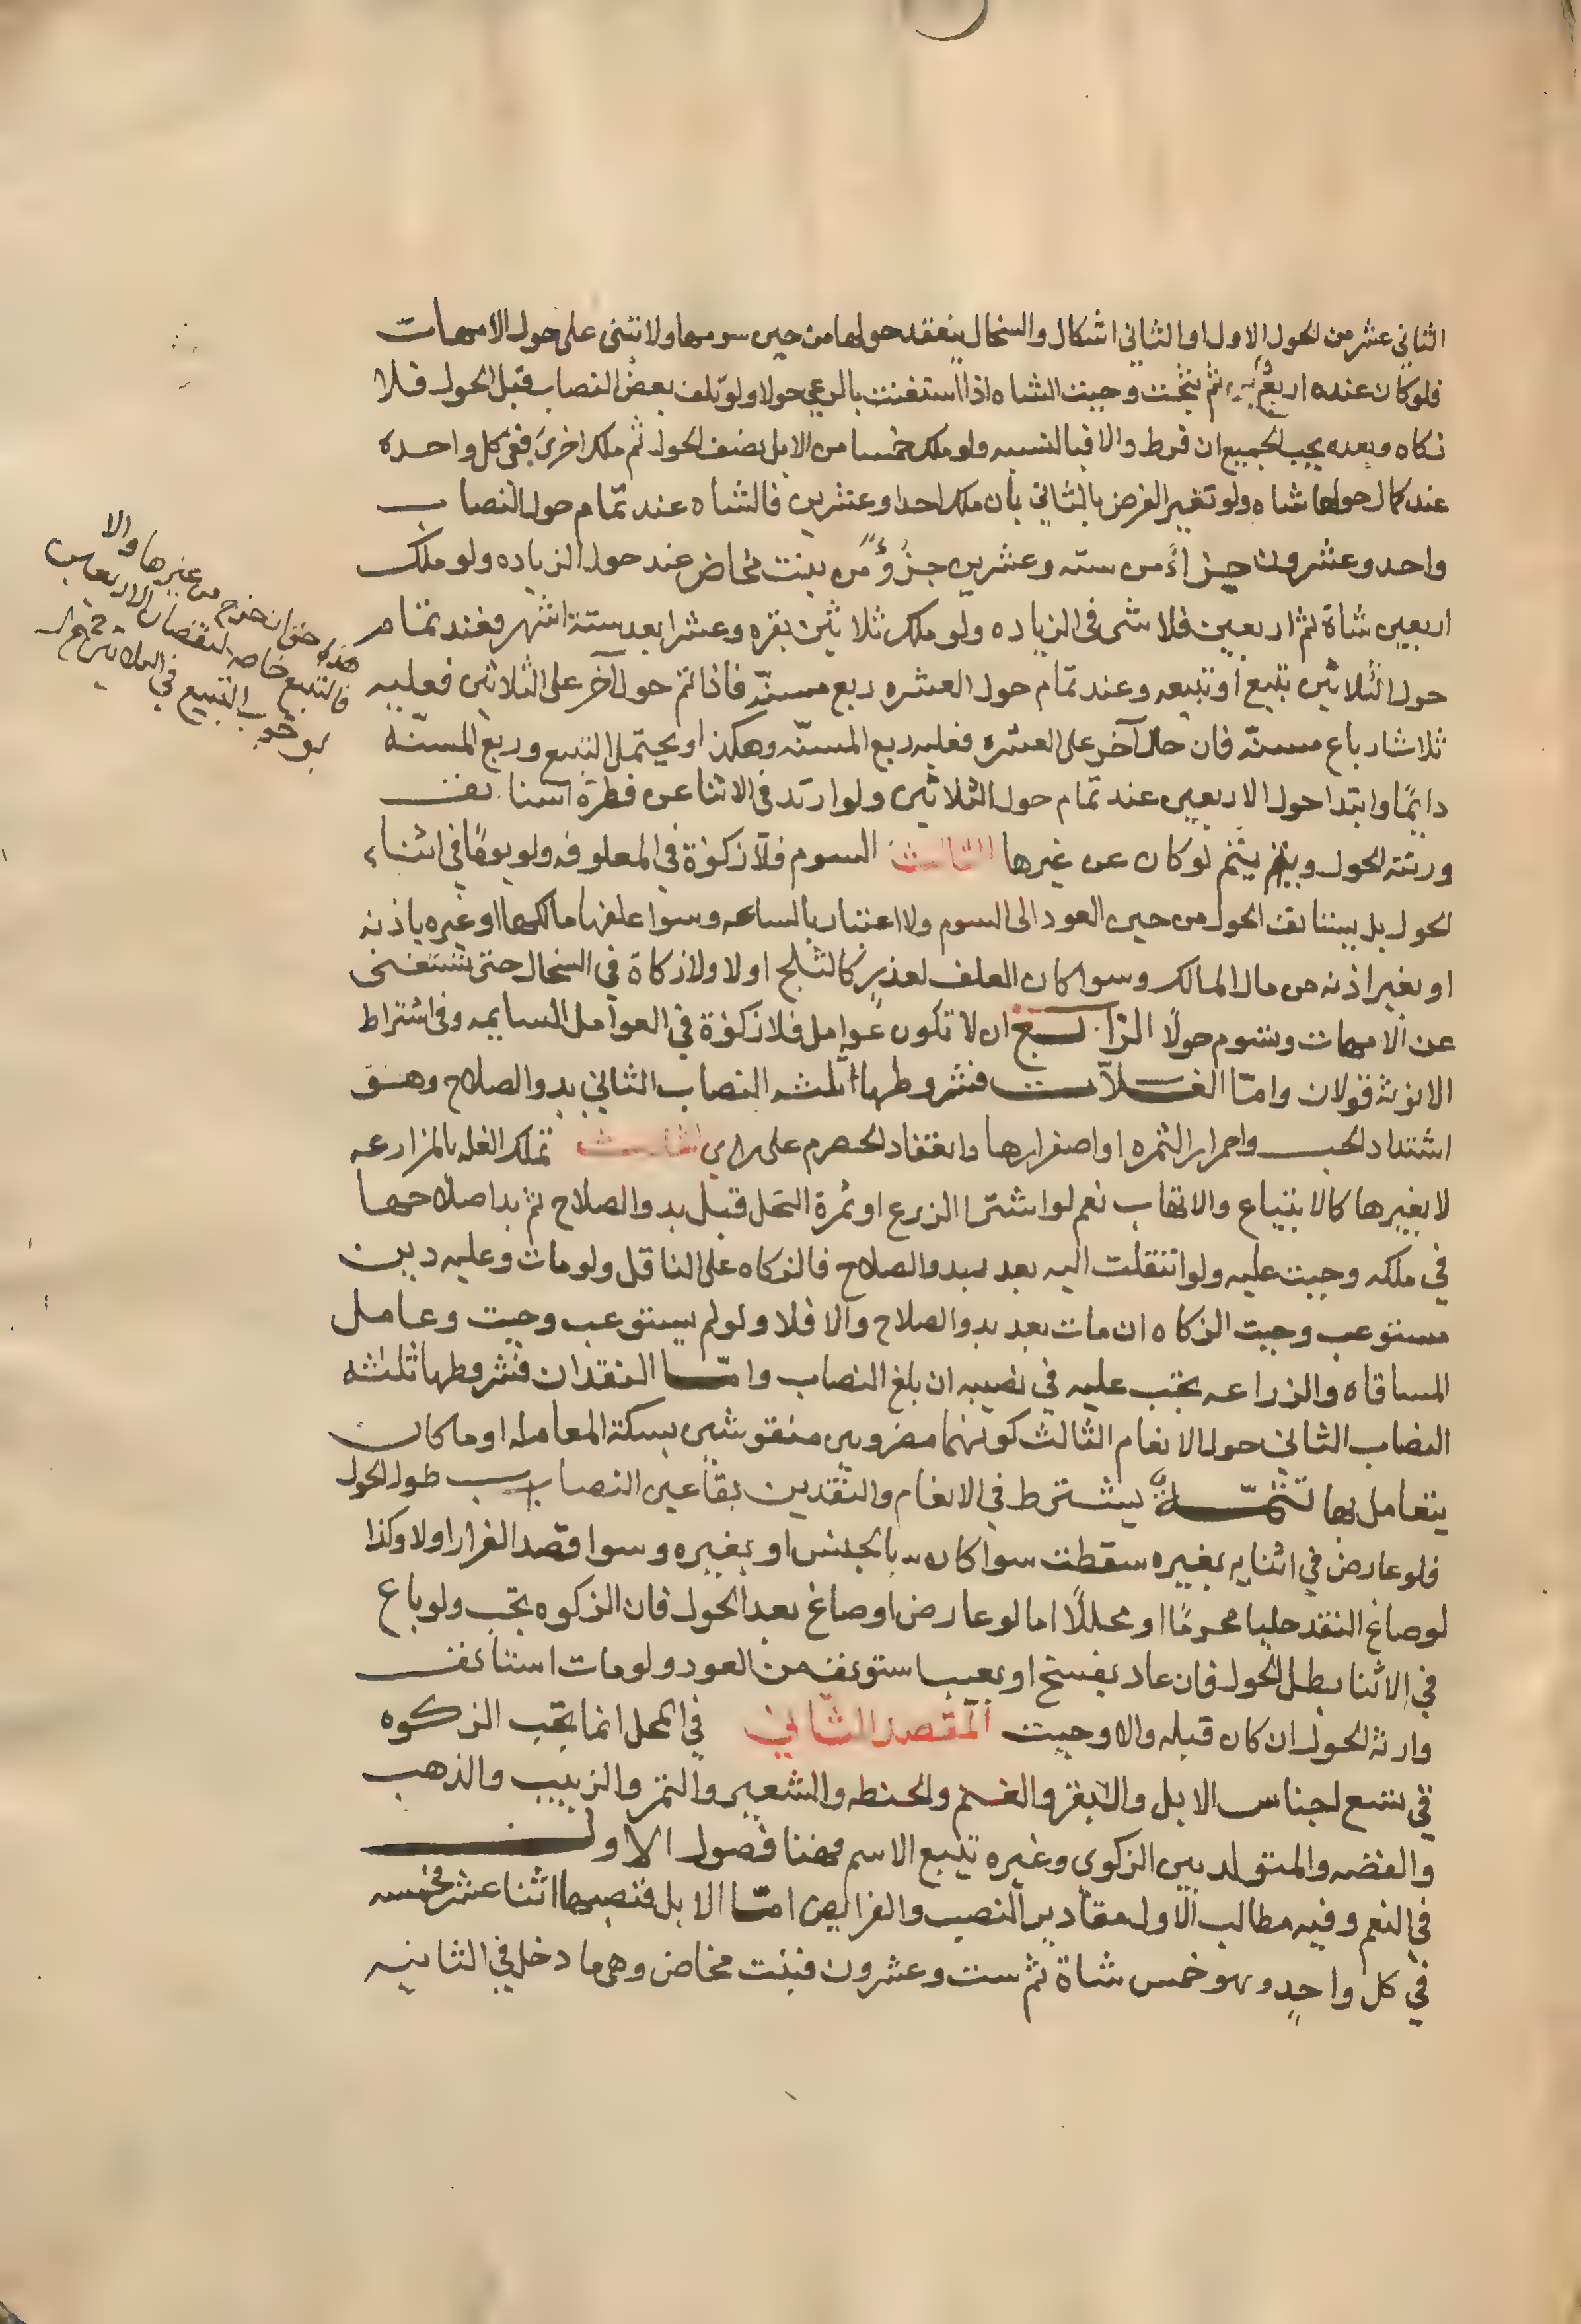 الثاني عشر من الحول الاول او الثاني اشكال والسخال ينعقد حولها من حين سومها ولا تبنى على حول الامهات
فلو كان عنده اربع ثم نتجت وجبت الشاه اذا استغنت بالرعي حولا ولو تلف بعض النصاب قبل الحول فلا
زكاه وبعده يجب الجميع ان فرط والا فبالنسبه ولو ملك خمسا من الابل نصف الحول ثم ملك اخرى ففي كل واحده
عند كمال حولها شاه ولو تغير الفرض بالثاني بان ملك احدا وعشرين فالشاه عند تمام حول النصاب
واحد وعشرون جزاءً من سته وعشرين جزؤ من بنت مخاض عند حول الزياده ولو ملك
اربعين شاة ثم اربعين فلا شى فى الزياده ولو ملك ثلاثين بقره وعشرا بعد ستة اشهر فعند تمام
حول الثلاثين تبيع او تبيعه وعند تمام حول العشره ربع مسنّه فاذا تم حول آخر على الثلاثين فعليه
ثلاثارباع مسنّه فان حال آخر على العشره فعليه ربع المسنّه وهكذا ويحتمل التبيع وربع المسنّه
دايمًا وابتدا حول الاربعين عند تمام حول الثلاثين ولو ارتد فى الاثنا عن فطرة استانف
ورثته الحول ويتم لو كان عن غيرها الثالث السوم فلا زكوة في المعلوفه ولو يومًا في اثناء
الحول بل يستانف الحول من حين العود الى السوم ولا اعتبار بالساعه وسوا علفها مالكها او غيره باذنه
او بغير اذنه من مال المالك وسوا كان العلف لعذرٍ كالثلج اولا ولا زكاة في السخال حتى تستغنى
عن الامهات وتسوم حولًا الرابع ان لا تكون عوامل فلا زكوة في العوامل السايمه وفى اشتراط
الانوثه قولان وامّا الغلّات فشروطها ثلثه النصاب الثاني بدو الصلاح وهو
اشتداد الحب واحمرار الثمره او اصفرارها وانعقاد الحصرم على راي الثالث تملك الغله بالمزارعه
لا بغيرها كالابتياع والاتهاب نعم لو اشترا الزرع او ثمرة النخل قبل بدو الصلاح ثم بدا صلاحها
في ملكه وجبت عليه ولو انتقلت اليه بعد بدو الصلاح فالزكاه على الناقل ولو مات وعليه دين
مستوعب وجبت الزكاه ان مات بعد بدو الصلاح والا فلا ولو لم يستوعب وجبت وعامل
المساقاه والزراعه تجب عليه في نصيبه ان بلغ النصاب وامّا النقدان فشروطها ثلثه
النصاب الثاني حول الانعام الثالث كونهما مضروبين منقوشين بسكة المعامله او ما كان
يتعامل بها تتمّة يشترط في الانعام والنقدين بقا عين النصاب طول الحول
فلو عارض في اثنايه بغيره سقطت سوا كان بالجنس او بغيره وسوا قصد الفرار اولا وكذا
لو صاغ النقد حليا محرمًا او محللًا اما لو عارض او صاغ بعد الحول فان الزكوه تجب ولو باع
في الاثنا بطل الحول فان عاد بفسخ او بعيب استونف من العود ولو مات استانف
وارثه الحول ان كان قبله والا وجبت المقصد الثاني في المحل انما تجب الزكوه
في تسع اجناس الابل والبقر والغنم والحنطه والشعير والتمر والزبيب والذهب
والفضه والمتولد بين الزكوي وغيره يتبع الاسم فهنا فصول الاول
في النعم وفيه مطالب الاول مقادير النصب والفرايض امّا الابل فنصبها اثنا عشر خمسه
في كل واحدٍ وهو خمس شاة ثم ست وعشرون فبنت مخاض وهي ما دخل في الثانيه
ان خرج من غيرها والا
فالتبيع خاصه لنقصان الاربعين
بوجوب التبيع في